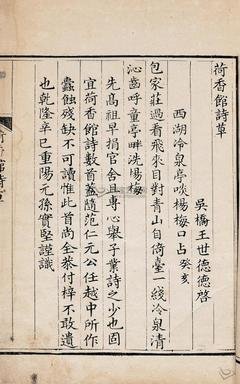 荷香館詩草
吳橋王世德德啓
西湖冷泉亭啖楊梅口占癸亥
包家莊過看飛來目對青山自倚臺一綫冷泉清
沁齒呼童亭畔洗楊梅
先高祖早捐官舍且專心舉子業詩之少也固
宜荷香館詩數首蓋隨范仁元公任越中所作
蠹蝕殘缺不可讀惟此首尚全恭付梓不敢遺
也乾隆辛巳重陽元孫實堅謹識